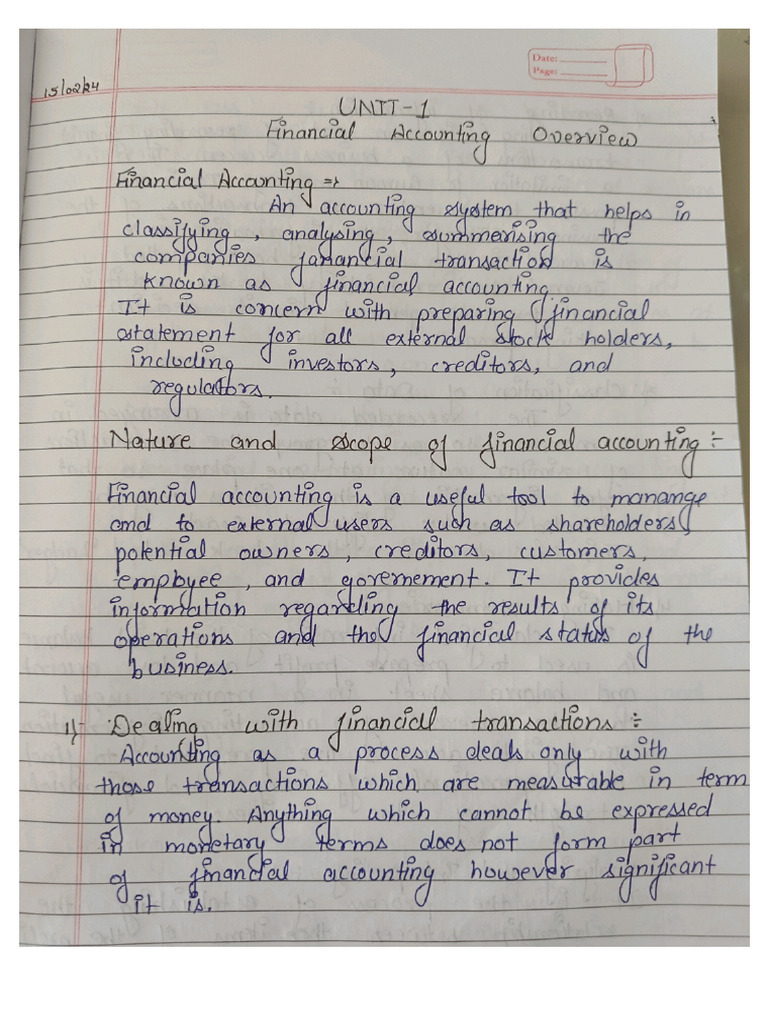 Date:
Page:
15/02/24
UNIT-1
Financial Accounting Overview
Financial Accounting =>
An accounting system that helps in
classifying, analysing, summerising the
companies fanancial transaction is
known as financial accounting.
It is concern with preparing financial
statement for all external stock holders,
including investors, creditors, and
regulators.
Nature and scope of financial accounting :-
Financial accounting is a useful tool to manange
and to external users such as shareholders,
potential owners, creditors, customers,
empbyee, and governement. It provides
information regarding the results of its
operations and the financial status of the
business.
1)- Dealing with financial transactions :-
Accounting as a process deals only with
those transactions which are measurable in term
of money. Anything which cannot be expressed
in monetary terms does not form part
of financial accounting however significant
it is.